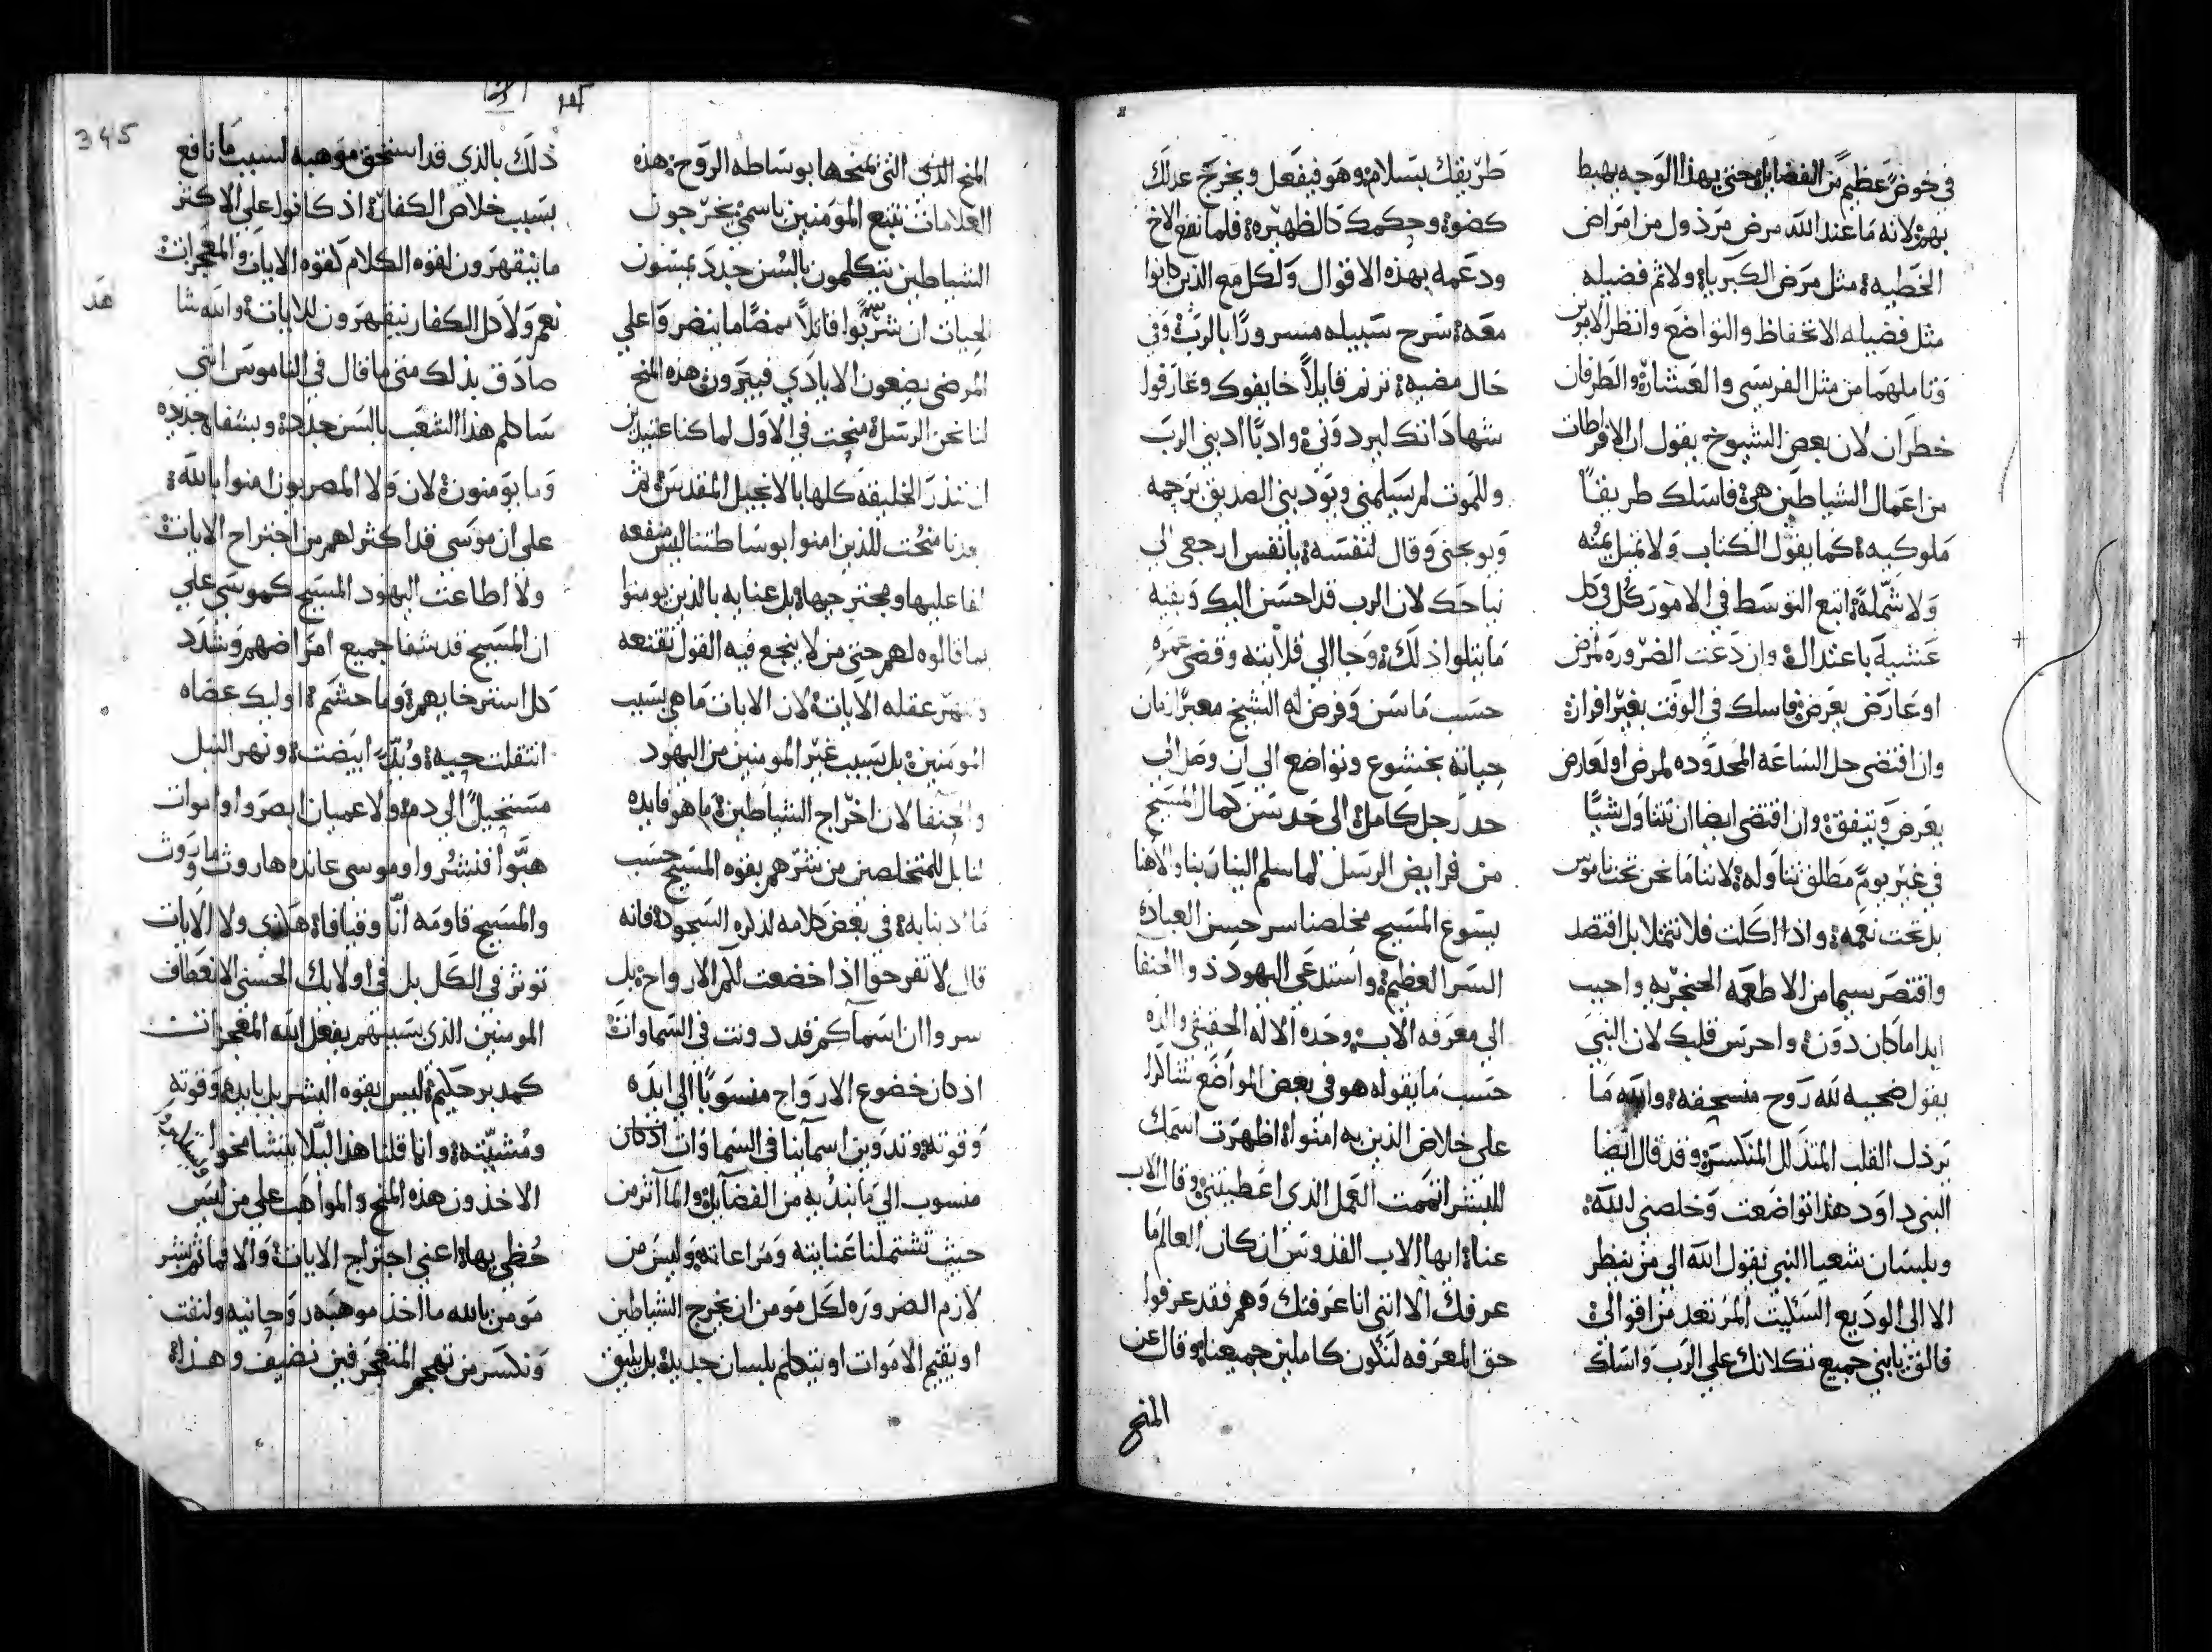 في خوض عظيم من الفضايل حتي بهذا الوجه يهبط
بهم لانه ما عند الله مرض مرذول من امراض
الخطيه مثل مرض الكبريا ولا ثم فضيله
مثل فضيله الاتحفاظ والتواضع وانظر الامرين
وتاملهما من مثل الفريسي والعشار والطرفان
خطران لان بعض الشيوخ يقول ان الافراطات
من اعمال الشياطين هي فاسلك طريقًا
ملوكيه كما يقول الكتاب ولا تميل يمنه
ولا شمله اتبع التوسط في الامور كل في كل
عشيه باعتدال وان دعت الضروره لمرض
او عارض يعرض فاسلك في الوقت بغير افراز
وان اقتضي حل الساعه المحدوده لمرض او لعارض
يعرض ويتفق وان اقتضي ايضا ان تتناول شيًا
في غير يوم مطلق تناوله لاننا ما نحن تحت ناموس
بل تحت نعمه واذا اكلت فلا تتملا بل اقتصد
واقتصر سيما من الاطعمه الحنجريه واحبب
ابدا ما كان دون واحرس قلبك لان النبي
يقول ضحيه لله روح منسحقه والله ما
يرذل القلب المتذلل المنكسر وقد قال ايضا
النبي داود هذا تواضعت وخلصني الله
وبلسان شعيا النبي يقول الله الي من ينظر
الا الي الوديع السكيت المرتعد من اقوالي
فالق يابني جميع تكلانك علي الرب واسلك
طريقك بسلام وهو فيفعل ويخرج عدلك
كضو وحكمك كالظهيره فلما نفع الاخ
ودعمه بهذه الاقوال ولكل مع الذين كانوا
معه سرح سبيله مسرورًا بالرب وفي
حال مضيه ترنم قايلاً خايفوك وعارفوا
شهاداتك ليردوني وادبًا ادبني الرب
وللموت لم يسلمني ويودبني الصديق برحمه
ويوبخني وقال لنفسه يانفس ارجعي الي
نياحك لان الرب قد احسن اليك وبقيه
ما يتلوا ذلك وجا الي قلايته وقضي عمره
حسب ما سن وفرض له الشيخ معبرًا زمان
حياته بخشوع وتواضع الي ان وصل الي
حد رجل كامل الي حد سن كمال المسيح
من فرايض الرسل لما سلم الينا ربنا والاهنا
يسوع المسيح مخلصنا سر حسن العباده
السر العظيم واستدعي اليهود ذو الحنفا
الي معرفه الاب وحده الاله الحقيقي والده
حسب ما يقوله هو في بعض المواضع شاكرًا
علي خلاص الذين به امنوا اظهرت اسمك
للبشر اتممت العمل الذي اعطيتني وقال للاب
عنا ايها الاب القدوس ان كان العالم ما
عرفك الا انني انا عرفتك وهم فقد عرفوا
حق المعرفه لتكون كاملين جميعنا وقال عن
المنح
المنح الذي التي نمنحها بوساطه الروح هذه
العلامات تتبع المومنين باسمي يخرجون
الشياطين يتكلمون بالسن جدد يمسون
الحيات ان شربوا قاتلاً ممضًا ما ينضر واعلي
المرضي يضعون الايادي فيبرون هذه المنح
لنا نحن الرسل منحت في الاول لما كنا عتيدين
ان ننذر الخليقه كلها بالانجيل المقدس ثم
بعدنا منحت للذين امنوا بوساطتنا ليس منفعه
لفاعليها ومجترحيها بل عنايه بالذين يومنوا
بما قالوه لهم حتي من لا ينجع فيه القول تقنعه
وتقهر عقله الايات لان الايات ما هي بسبب
المومنين بل بسبب غير المومنين من اليهود
والحنفا لان اخراج الشياطين ما هو فايده
لنا بل للمتخلصين من شرهم بقوه المسيح حسب
ما ادبنا به في بعض كلامه لذكره السجود فانه
قال لا تفرحوا اذا خضعت لكم الارواح بل
سروا ان اسماكم قد دونت في السماوات
اذ كان خضوع الارواح منسوبًا الي ايده
وقوته وتدوين اسماينا في السماوات اذ كان
منسوب الي ما نبد به من الفضايل والما اثر من
حيث تشتملنا عنايته ومراعاته وليس من
لازم الضروره لكل مومن ان يخرج الشياطين
او يقيم الاموات او يتكلم بلسان جديد بل يليق
345
ذلك بالذي قد استحق موهبه لسبب ما نافع
بسبب خلاص الكفار اذ كانوا علي الاكثر
ما ينقهرون لقوه الكلام لقوه الايات والمعجزات
نعم ولا كل الكفار ينقهرون للايات والله شا
هد
صادق بذلك متي ما قال في الناموس انني
ساكلم هذا الشعب بالسن جدد وبشفاه جديده
وما يومنون لان ولا المصريون امنوا بالله
علي ان موسي قد اكثر لهم من اجتراح الايات
ولا اطاعت اليهود المسيح كموسي علي
ان المسيح قد شفا جميع امراضهم وشدد
كل استرخايهم وما حشم اوليك عصاه
انتقلت حيه ويد ابيضت ونهر النيل
مستحيل الي دم ولا عميان ابصروا واموات
هبوا فنشروا وموسي عانده هاروث ماروث
والمسيح قاومه انا وقيافا هكذي ولا الايات
توثر في الكل بل في اولايك الحسني الانعطاف
المومنين الذي بسببهم يفعل الله المعجزات
كمدبر حكيم ليس بقوه البشر بل بايده وقوته
ومشيته وانما قلنا هذا ليلا يتشامخوا
الاخذون هذه المنح والمواهب علي من ليس
حظي بها اعني اجتراح الايات والا فما ثم بشر
مومن بالله ما اخذ موهبه روحانيه ولتفت
ونكسر من تهجم المتعجرفين نضيف وهذا